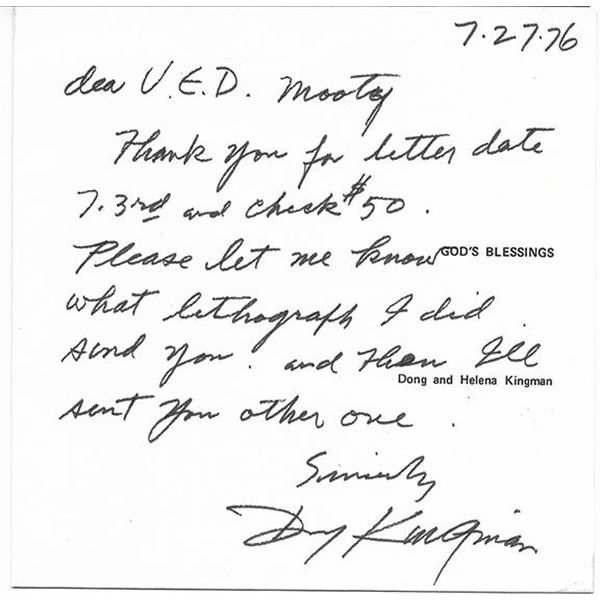 7.27.76
dea V.E.D. Mooty
Thank you for letter date
7.3rd and check $50.
Please let me know
GOD'S BLESSINGS
what lithograph I did
send you. and then I'll
Dong and Helena Kingman
sent you other one.
Sincerely
Dong Kingman